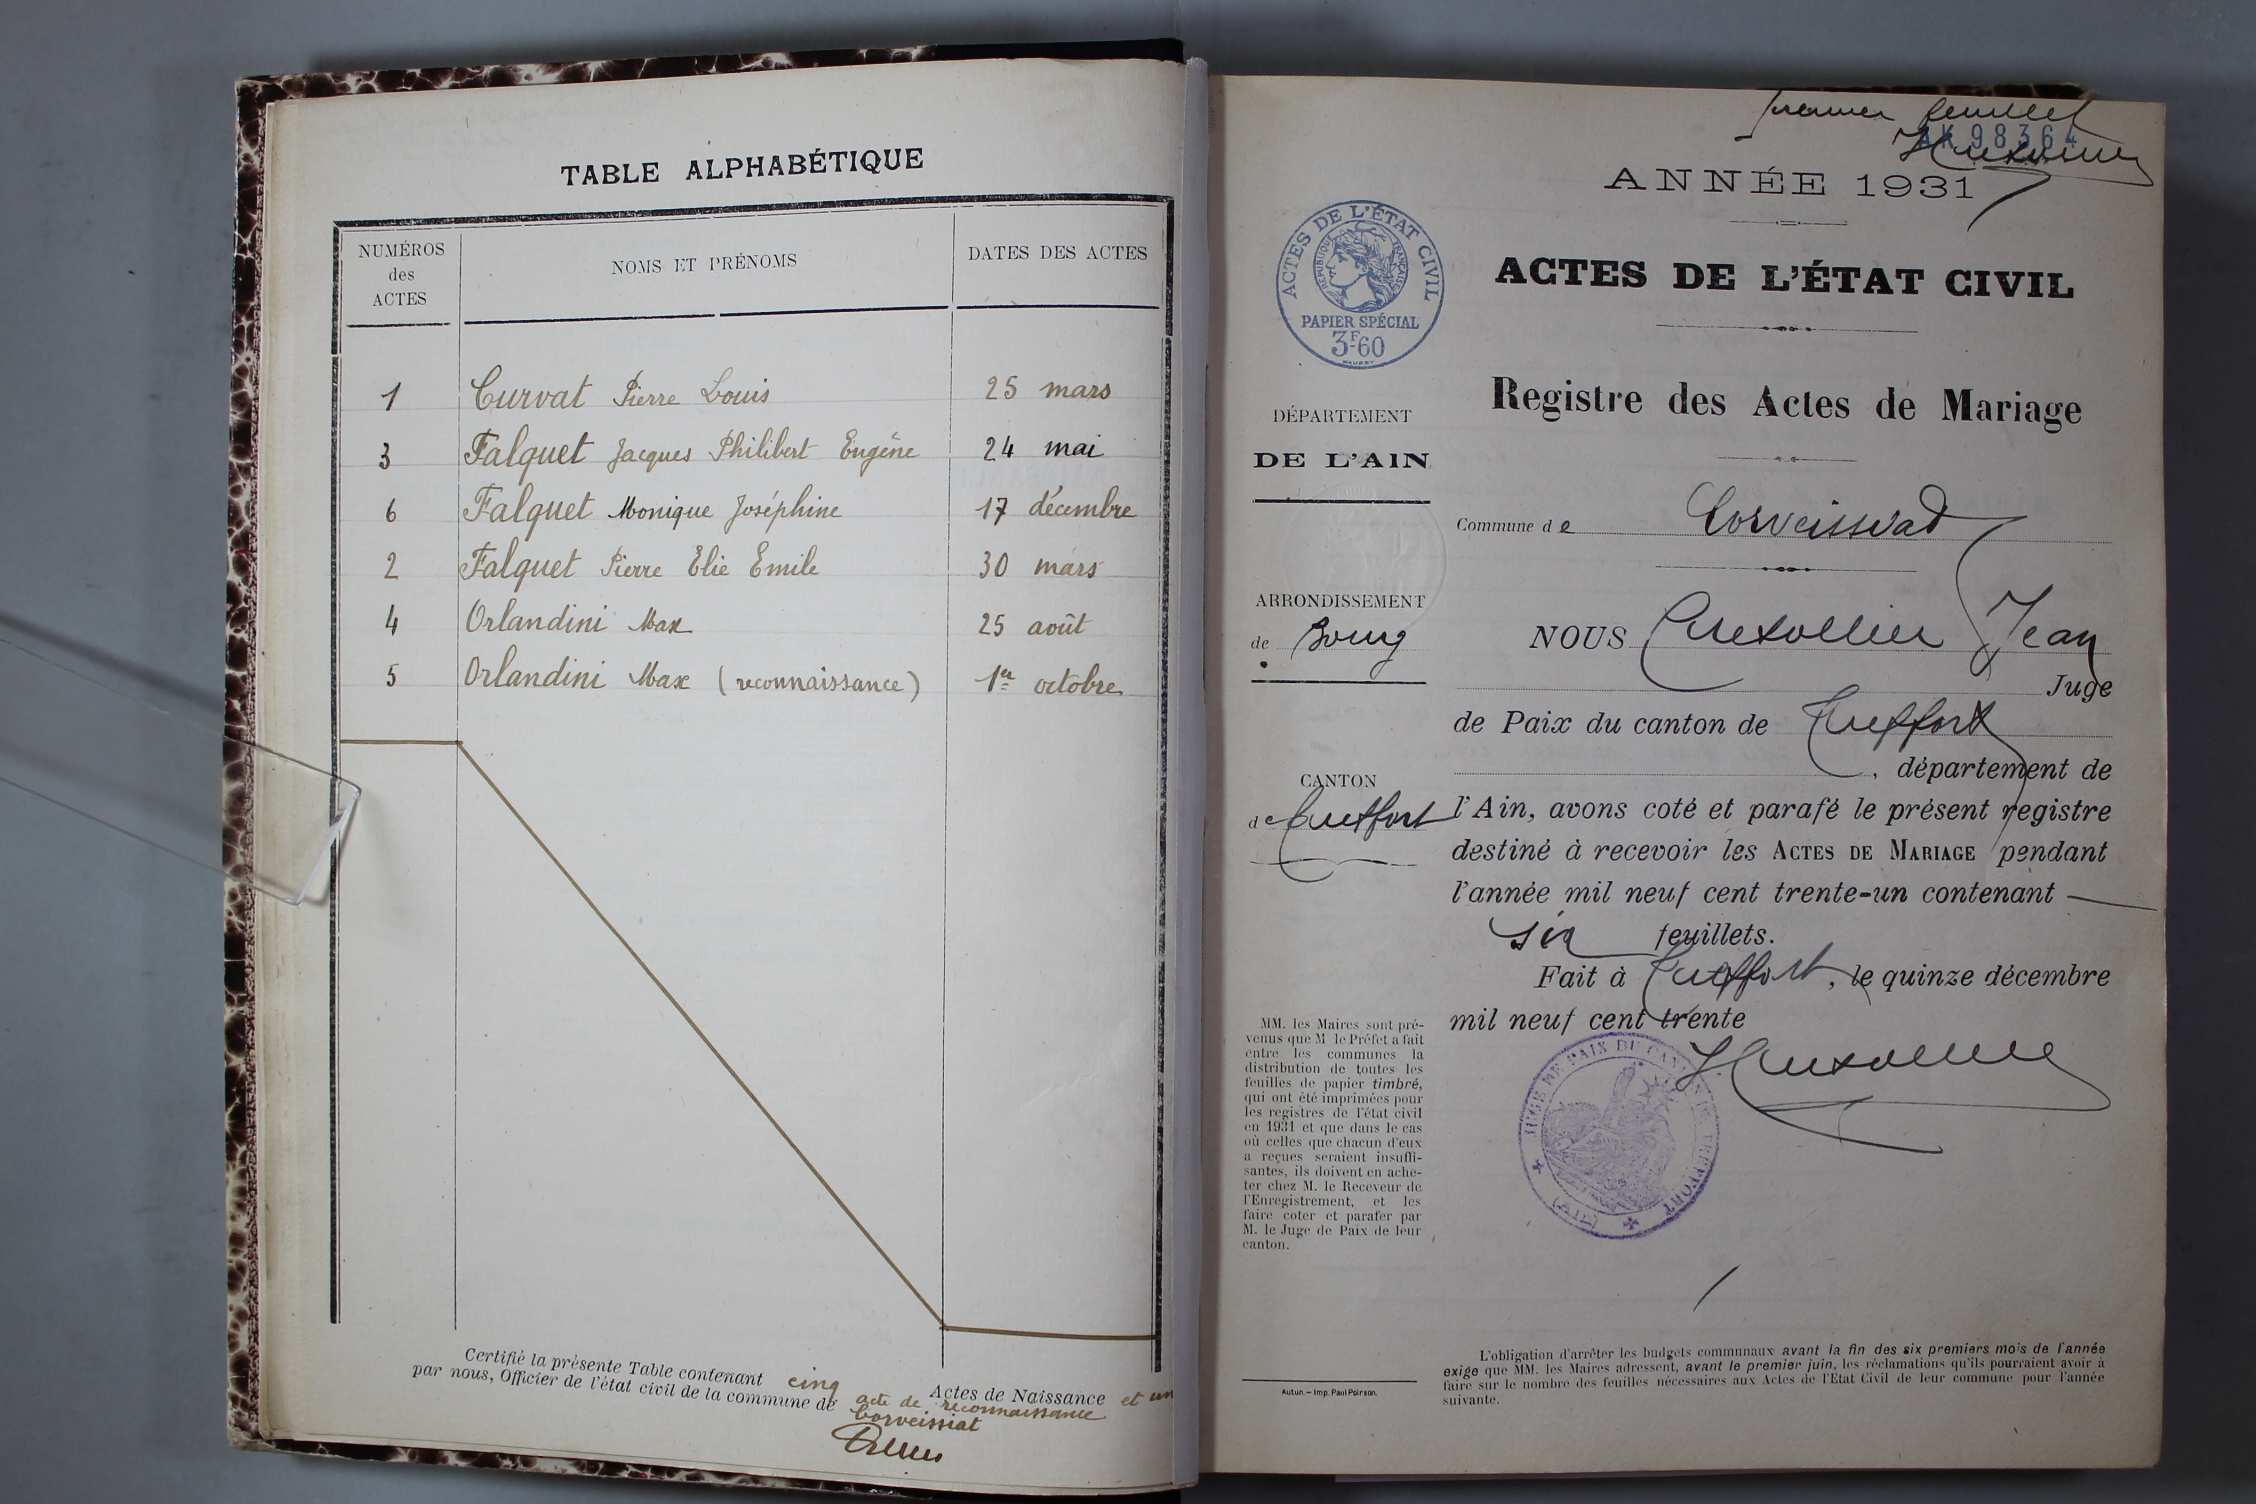 TABLE ALPHABÉTIQUE
NUMÉROS
des
ACTES
NOMS ET PRÉNOMS
DATES DES ACTES
1 Curvat Pierre Louis 25 mars
3 Falquet Jacques Philibert Eugène 24 mai
6 Falquet Monique Joséphine 17 décembre
2 Falquet Pierre Elie Emile 30 mars
4 Orlandini Max 25 août
5 Orlandini Max (reconnaissance) 1er octobre
Certifié la présente Table contenant cinq Actes de Naissance et un
acte de reconnaissance
par nous, Officier de l'état civil de la commune de Corveissiat
premier feuillet
AK 98364
ANNÉE 1931
ACTES DE L'ÉTAT CIVIL
RÉPUBLIQUE FRANÇAISE
PAPIER SPÉCIAL
3F60
ACTES DE L'ÉTAT CIVIL
Registre des Actes de Mariage
DÉPARTEMENT
DE L'AIN
Commune de Corveissiat
ARRONDISSEMENT
de Bourg
CANTON
de Treffort
NOUS Jean
Juge
de Paix du canton de Treffort
, département de
l'Ain, avons coté et parafé le présent registre
destiné à recevoir les ACTES DE MARIAGE pendant
l'année mil neuf cent trente-un contenant
six feuillets.
Fait à Treffort, le quinze décembre
mil neuf cent trente
JUGE DE PAIX DU CANTON DE TREFFORT
(AIN)
MM. les Maires sont pré-
venus que M le Préfet a fait
entre les communes la
distribution de toutes les
feuilles de papier timbré,
qui ont été imprimées pour
les registres de l'état civil
en 1931 et que dans le cas
où celles que chacun d'eux
a reçues seraient insuffi-
santes, ils doivent en ache-
ter chez M. le Receveur de
l'Enregistrement, et les
faire coter et parafer par
M. le Juge de Paix de leur
canton.
Autun. — Imp. Paul Poirson.
L'obligation d'arrêter les budgets communaux avant la fin des six premiers mois de l'année
exige que MM. les Maires adressent, avant le premier juin, les réclamations qu'ils pourraient avoir à
faire sur le nombre des feuilles nécessaires aux Actes de l'Etat Civil de leur commune pour l'année
suivante.